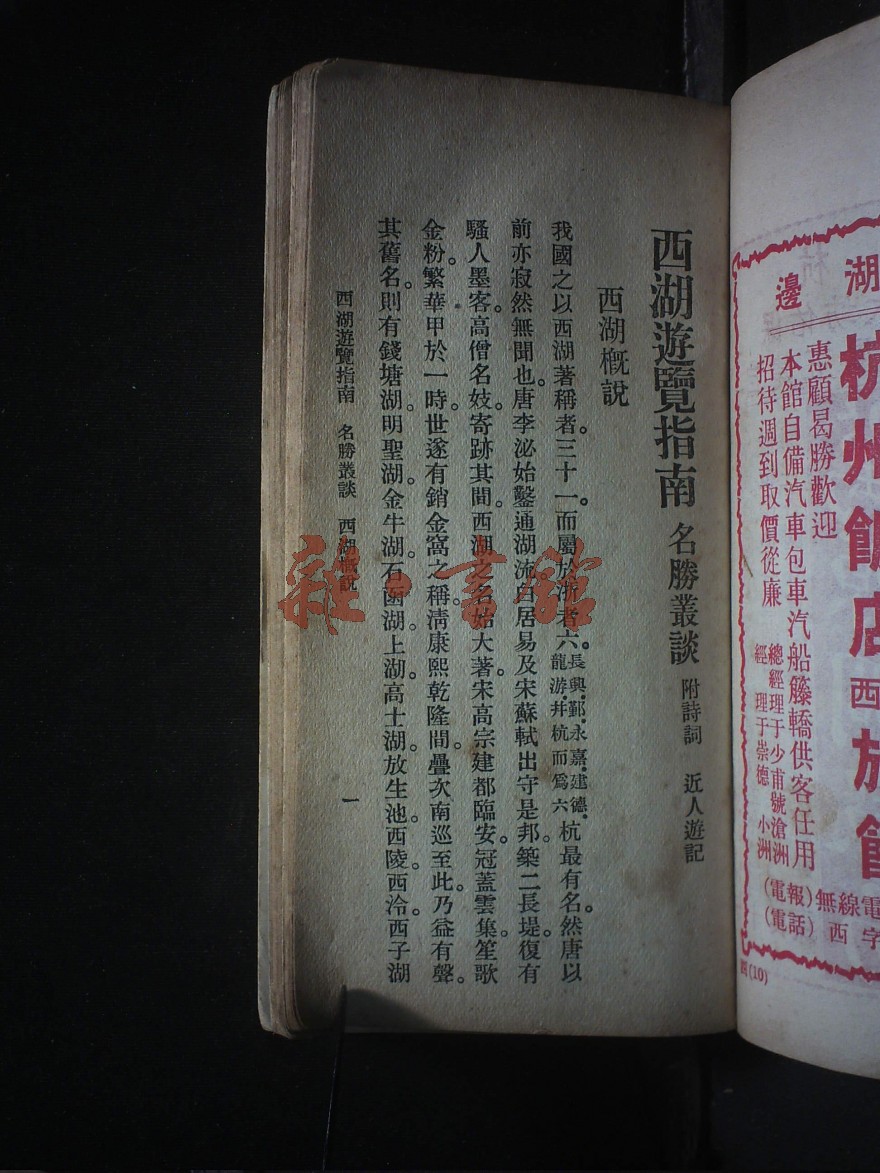 湖邊
杭州飯店西旅館
惠顧曷勝歡迎
本館自備汽車包車汽船籐轎供客任用
招待週到取價從廉
總經理于少甫號滄洲
經理于崇德 小洲
(電報)無線電
(電話)西字
(10)
西湖遊覽指南 名勝叢談 附詩詞 近人遊記
西湖概說
我國之以西湖著稱者。三十一。而屬於浙者六。長興.鄞.永嘉.建德.龍游.幷杭而爲六杭最有名。然唐以
前亦寂然無聞也。唐李泌始鑿通湖流。白居易及宋蘇軾出守是邦。築二長堤。復有
騷人墨客。高僧名妓。寄跡其間。西湖之名。始大著。宋高宗建都臨安。冠蓋雲集。笙歌
金粉。繁華甲於一時。世遂有銷金窩之稱。淸康熙乾隆間。疊次南巡至此。乃益有聲。
其舊名。則有錢塘湖。明聖湖。金牛湖。石函湖。上湖。高士湖。放生池。西陵。西泠。西子湖
西湖遊覽指南 名勝叢談 西湖概說
一
雜·書館